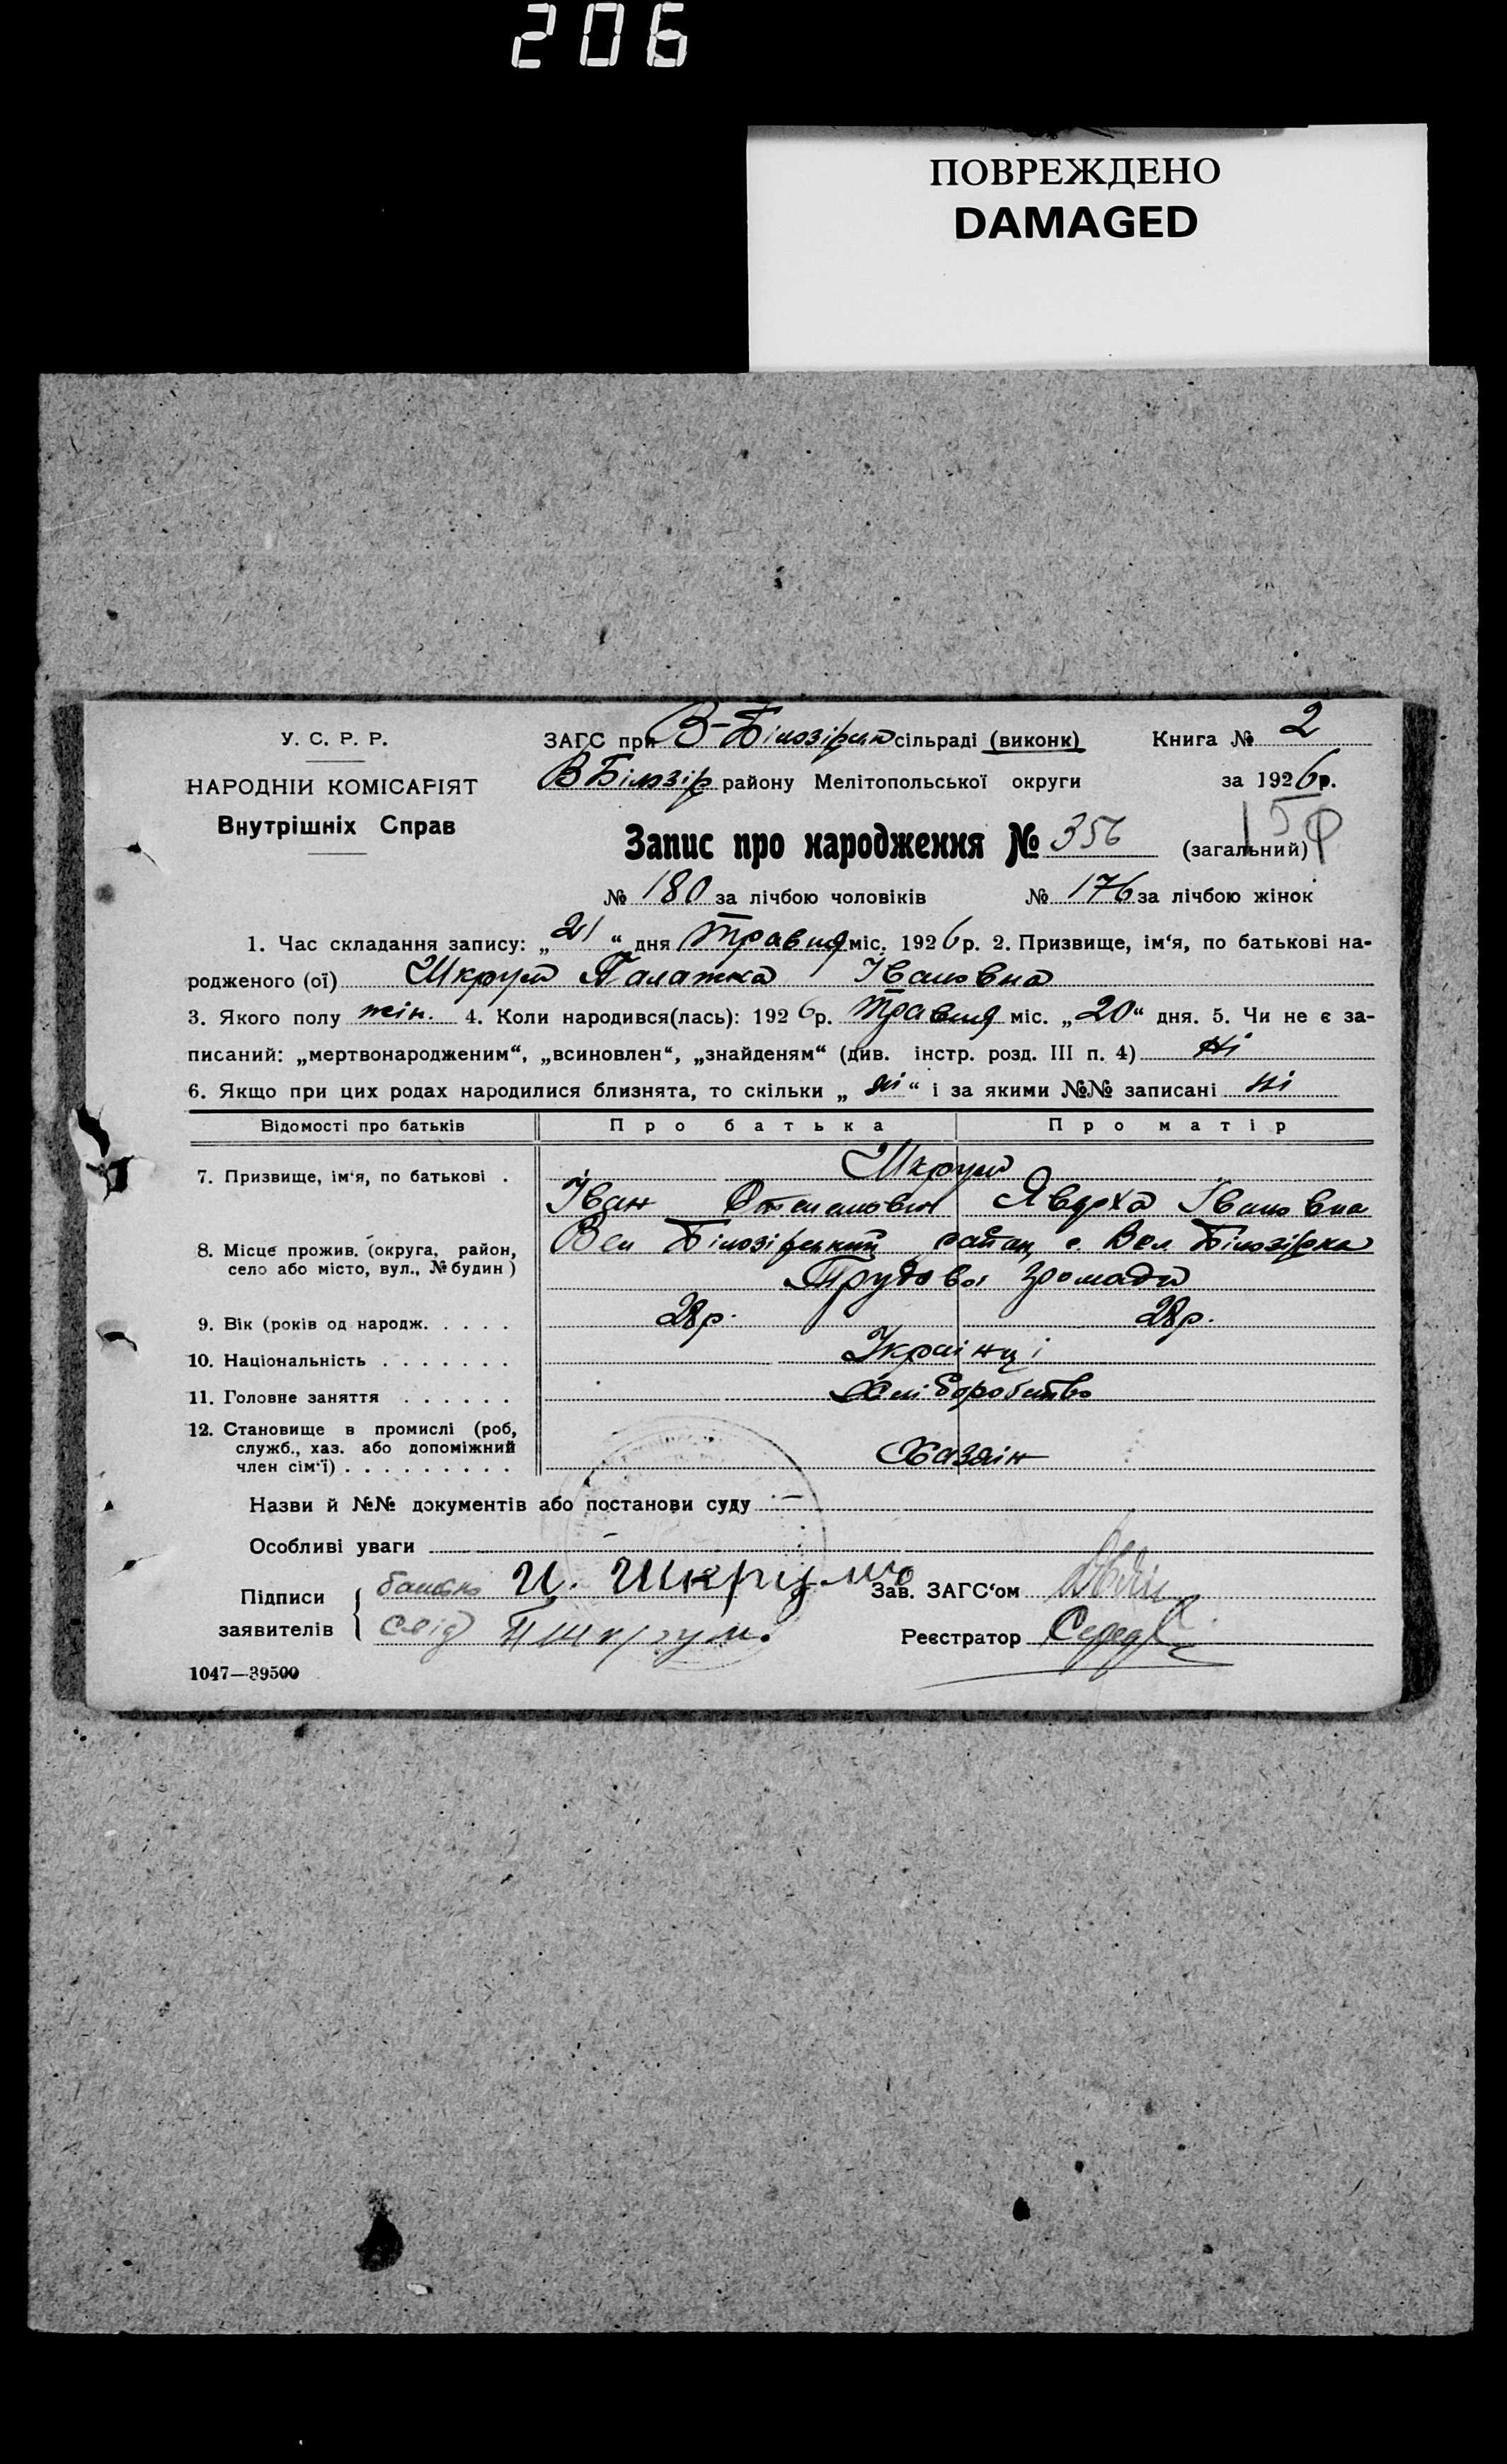 206
ПОВРЕЖДЕНО
DAMAGED
У. С. Р. Р.
НАРОДНІЙ КОМІСАРІЯТ
Внутрішніх Справ
ЗАГС при В-Білозірськ сільраді (виконк) Книга № 2
В Білозір району Мелітопольської округи за 1926 р.
Запис про народження № 356 (загальний)
№ 180 за лічбою чоловіків № 176 за лічбою жінок
1. Час складання запису: „21“ дня Травня міс. 1926 р. 2. Призвище, ім‘я, по батькові на-
родженого (ої) Шкрум Палажка Івановна
3. Якого полу жін. 4. Коли народився(лась): 1926 р. Травня міс. „20“ дня. 5. Чи не є за-
писаний: „мертвонародженим“, „всиновлен“, „знайденям“ (див. інстр. розд. III п. 4) Ні
6. Якщо при цих родах народилися близнята, то скільки „ні“ і за якими №№ записані Ні
Відомості про батьків Про батька Про матір
7. Призвище, ім‘я, по батькові . Шкрум
Іван Явдоха Івановна
8. Місце прожив. (округа, район, село або місто, вул., № будин) Вел Білозірський район с. Вел. Білозірка
Трудова громада
9. Вік (років од народж. . . . . 28р. 28р.
10. Національність . . . . . . . Українці
11. Головне заняття . . . . . . Хліборобство
12. Становище в промислі (роб, служб., хаз. або допоміжний член сім‘ї) . . . . . . . . . Хазяін
Назви й №№ документів або постанови суду —
Особливі уваги —
Підписи заявителів { батько И. Шкрумъ Зав. ЗАГС‘ом
свід П Шкрум. Реєстратор
1047—39500